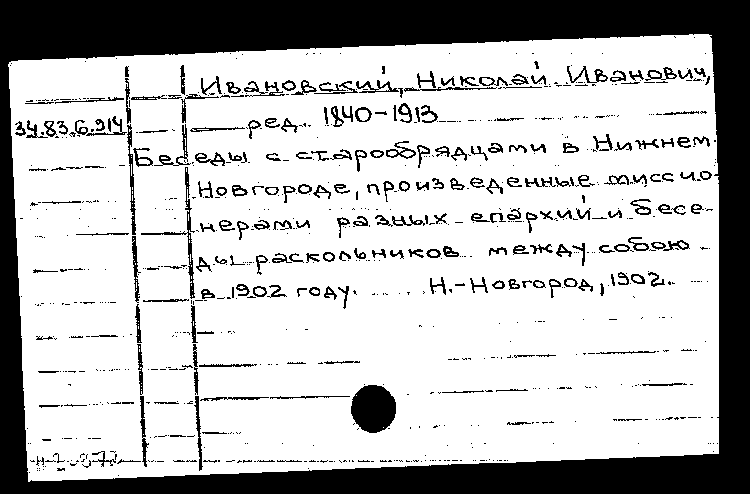 Ивановский, Николай Иванович,
34.83.6.914 ред. 1840-1913
Беседы с старообрядцами в Нижнем
Новгороде, произведенные миссио-
нерами разных епархий и бесе-
ды раскольников между собою
в 1902 году. Н.-Новгород, 1902.